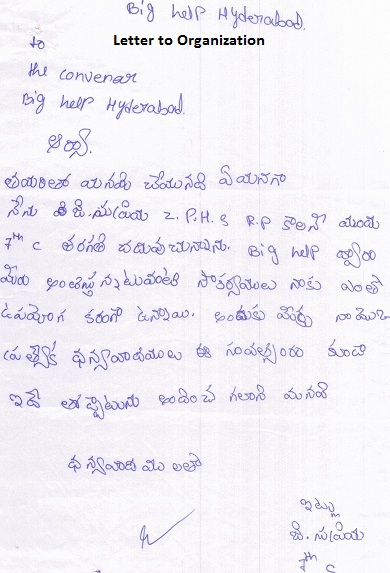 Big help Hyderabad.
Letter to Organization
to
the convenar
Big help Hyderabad.
ఆర్యా.
చేయునది ఏమనగా
నేను జి. సుప్రియ Z.P.H.S R.P కాలనీ యందు
7th C తరగతి చదువుచున్నాను. Big help ద్వారా
మీరు అందిస్తున్నటువంటి సౌకర్యాలు నాకు ఎంతో
ఉపయోగ కరంగా ఉన్నాయి. అందుకు మీకు నా
ప్రత్యేక ధన్యవాదములు ఈ సంవత్సరం కూడా
ఇదే అందించ గలరని మనవి
ధన్యవాదములతో
ఇట్లు
జి. సుప్రియ
7th C